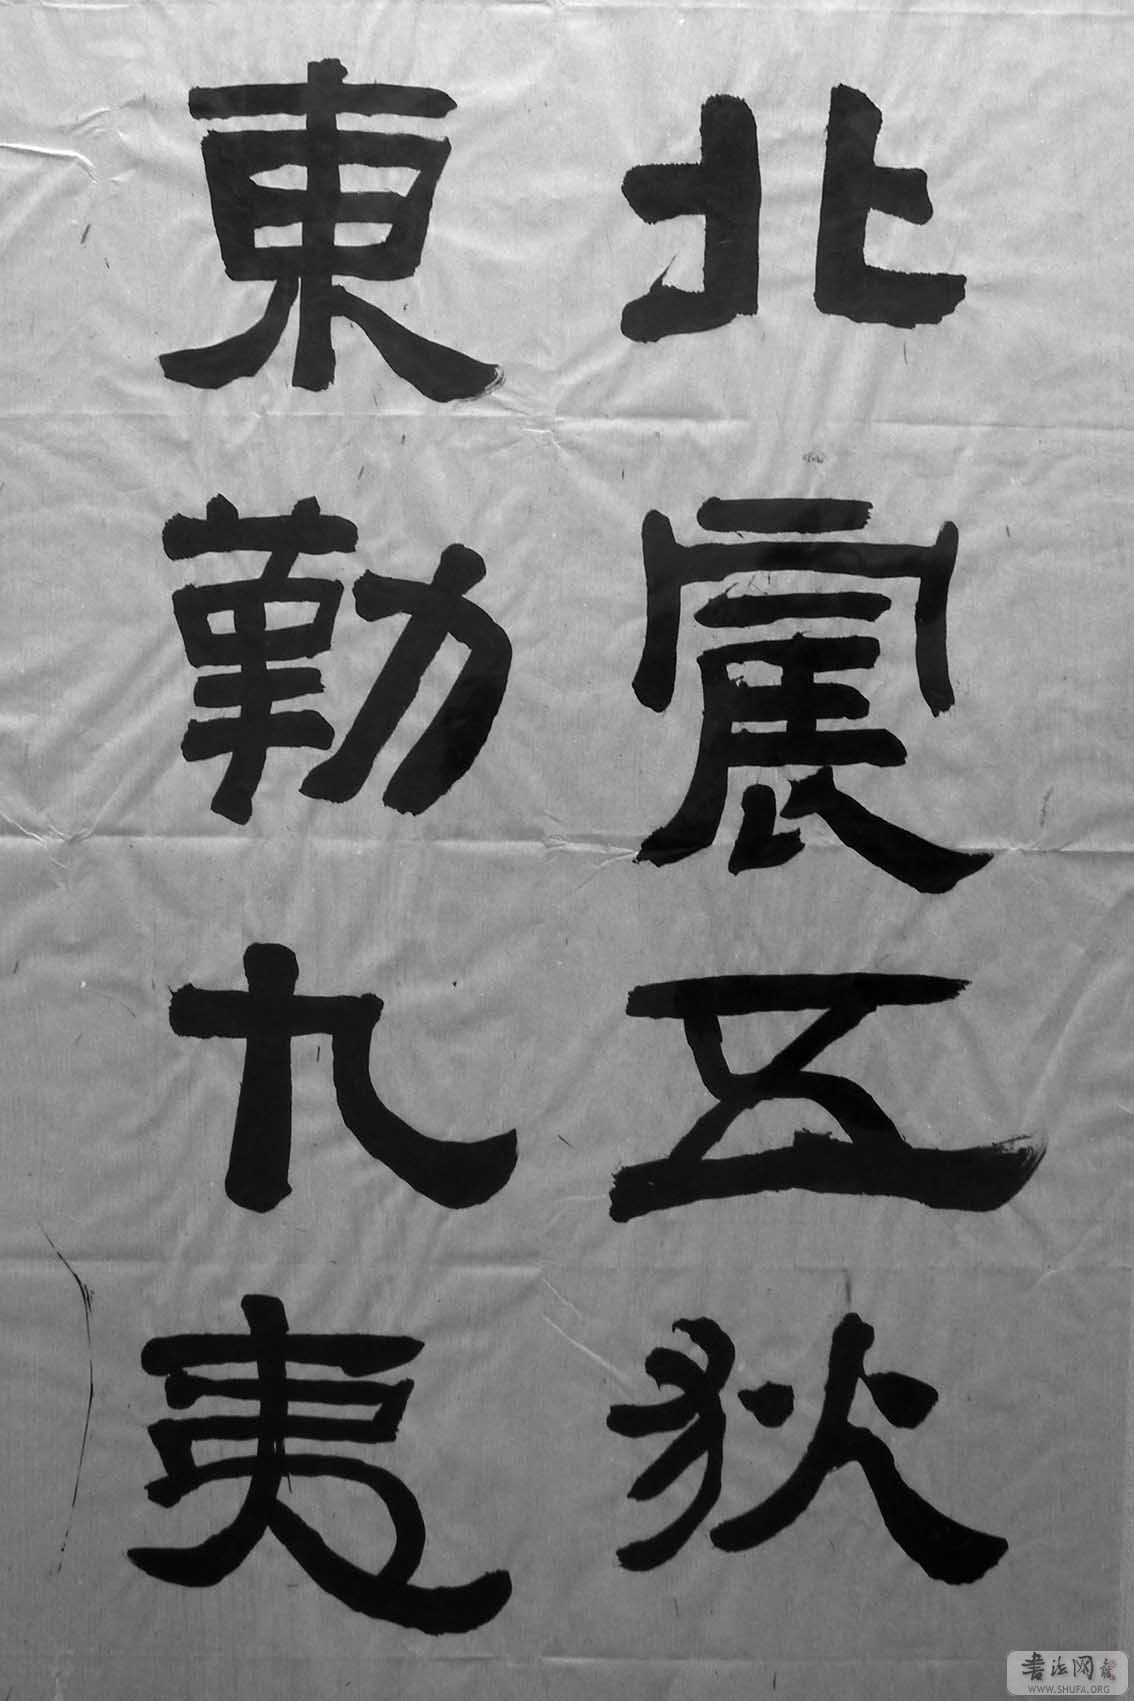 北震五狄
東勤九夷
書法网
WWW.SHUFA.ORG